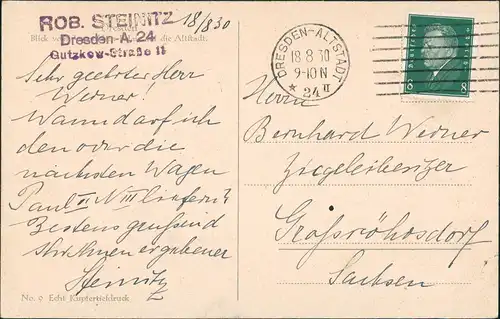 ROB. STEINITZ
Dresden-A. 24
Gutzkow-Straße 11
18/8 30
die Altstadt.
Sehr geehrter Herr
Werner!
Wann darf ich
den oder die
nächsten Wagen
Paul II N III liefern?
Bestens grüßend
Ihr Ihnen ergebener
Steinitz
No. 9 Echt Kupfertiefdruck
DRESDEN-ALTSTADT
18.8.30
9-10 N
* 24 II
8 8
Herrn
Bernhard Werner
Ziegeleibesitzer
Großröhrsdorf
Sachsen